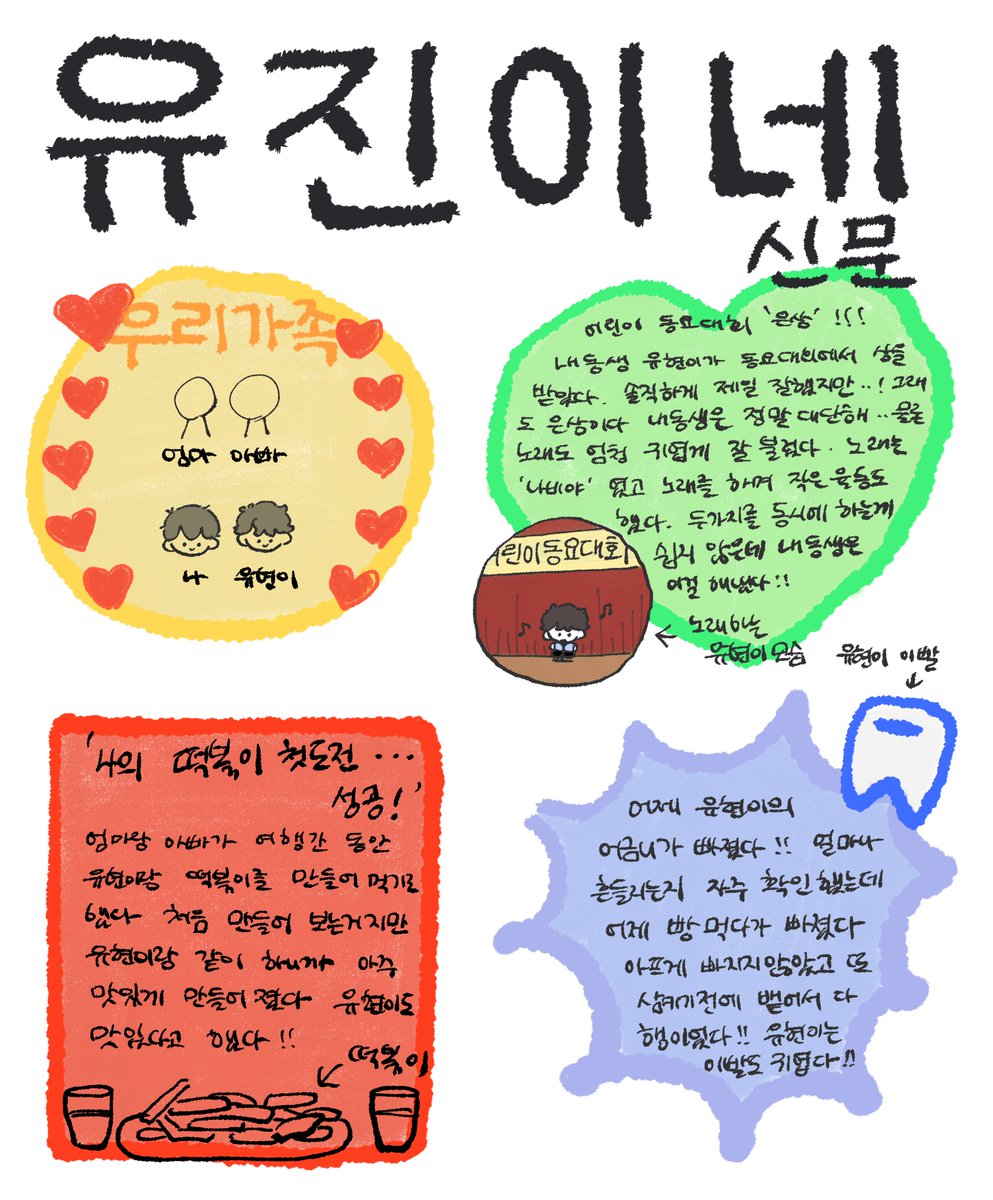 유진이네
신문
우리가족
엄마 아빠
나 유현이
어린이 동요대회 '은상' !!!
내동생 유현이가 동요대회에서 상을
받았다. 솔직하게 제일 잘했지만..! 그래
도 은상이다 내동생은 정말 대단해.. 물론
노래도 엄청 귀엽게 잘 불렀다. 노래는
'나비야' 였고 노래를 하며 작은 율동도
했다. 두가지를 동시에 하는게
쉽지 않은데 내동생은
이걸 해냈다!!
어린이동요대회
노래하는
유현이모습
유현이 이빨
'나의 떡볶이 첫도전...
성공!'
엄마랑 아빠가 여행간 동안
유현이랑 떡볶이를 만들어먹기로
했다 처음 만들어 보는거지만
유현이랑 같이 하니까 아주
맛있게 만들어졌다 유현이도
맛있다고 했다!!
떡볶이
어제 유현이의
어금니가 빠졌다!! 얼마나
흔들리는지 자주 확인했는데
어제 빵먹다가 빠졌다
아프게 빠지지않았고 또
삼키기전에 뱉어서 다
행이였다!! 유현이는
이빨도 귀엽다!!